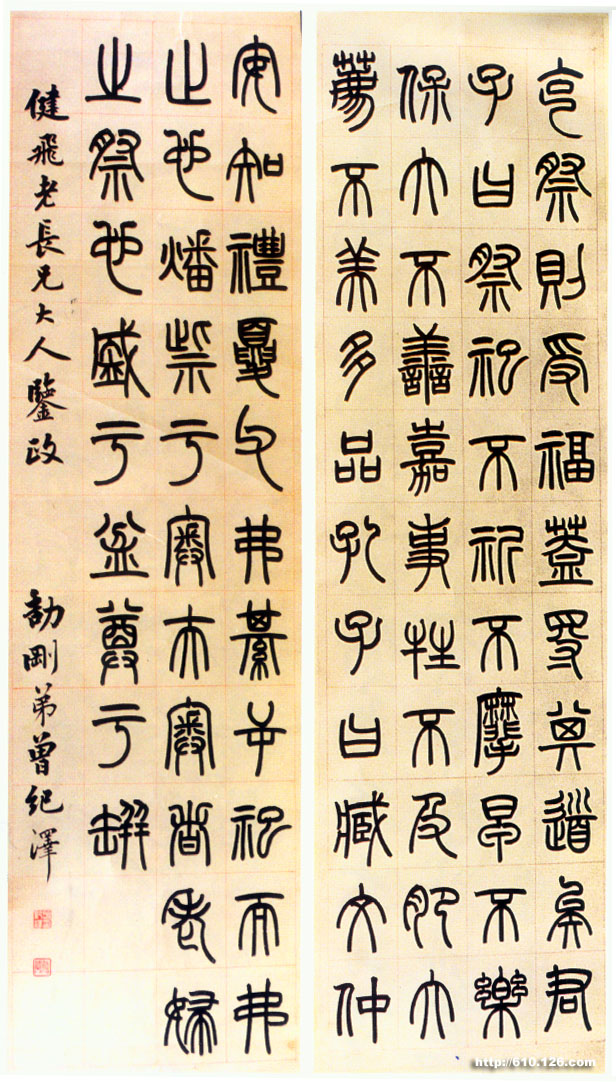 克祭則受福蓋得其道矣君
子曰祭祀不祈不麾早不樂
保大不善嘉事牲不及肥大
薦不美多品孔子曰臧文仲
安知禮夏父弗綦屰祀而弗
止也燔祡于奧夫奧者老婦
之祭也盛于盆尊于缾
健飛老長兄大人鑒政
劼剛弟曾紀澤
http://610.126.com